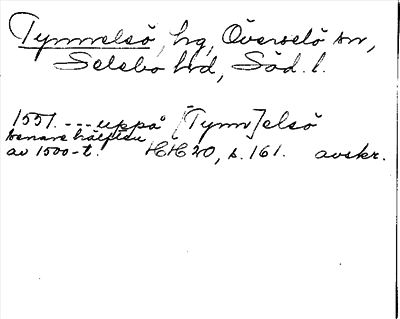 Tynnelsö, hg, Överselö sn,
Selebo hd, Söd. l.
1551. --- uppå [Tynn]elsö
senare hälften
av 1500-t. HH 20, s. 161. avskr.